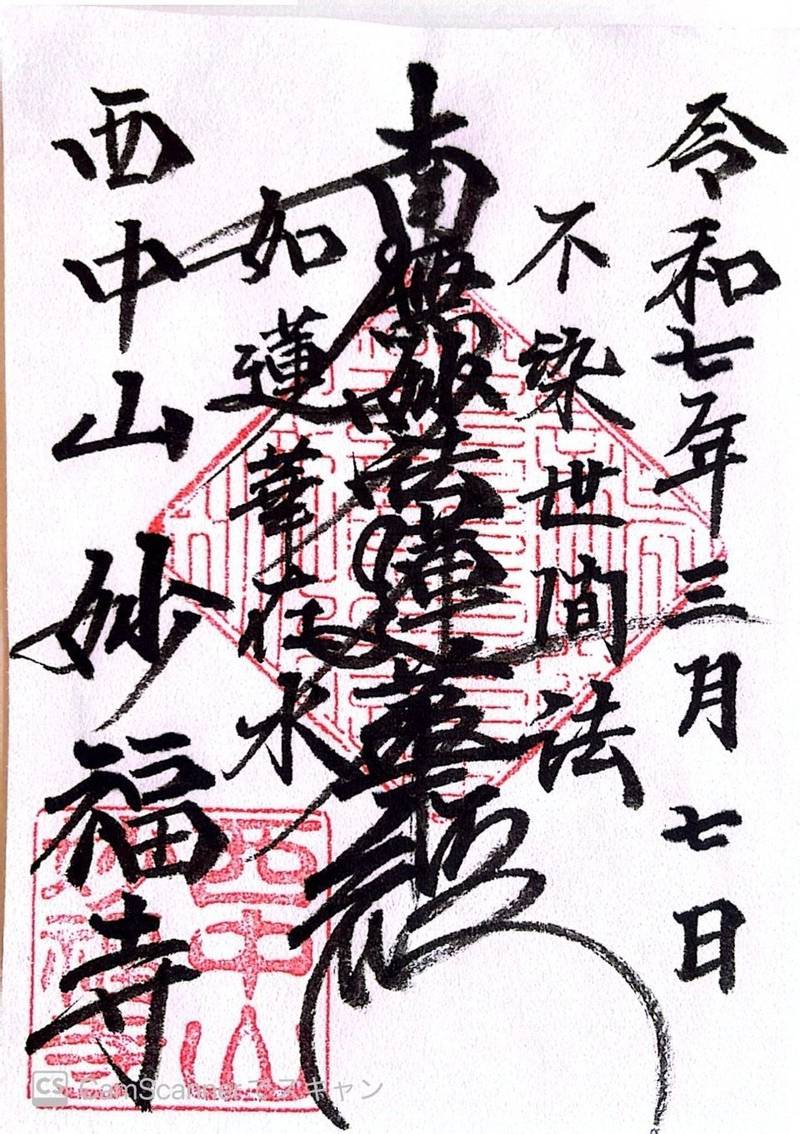 令和七年三月七日
不染世間法
南無妙法蓮華経
如蓮華在水
西中山 妙福寺
西中山
妙福寺
CS CamScannerでスキャン